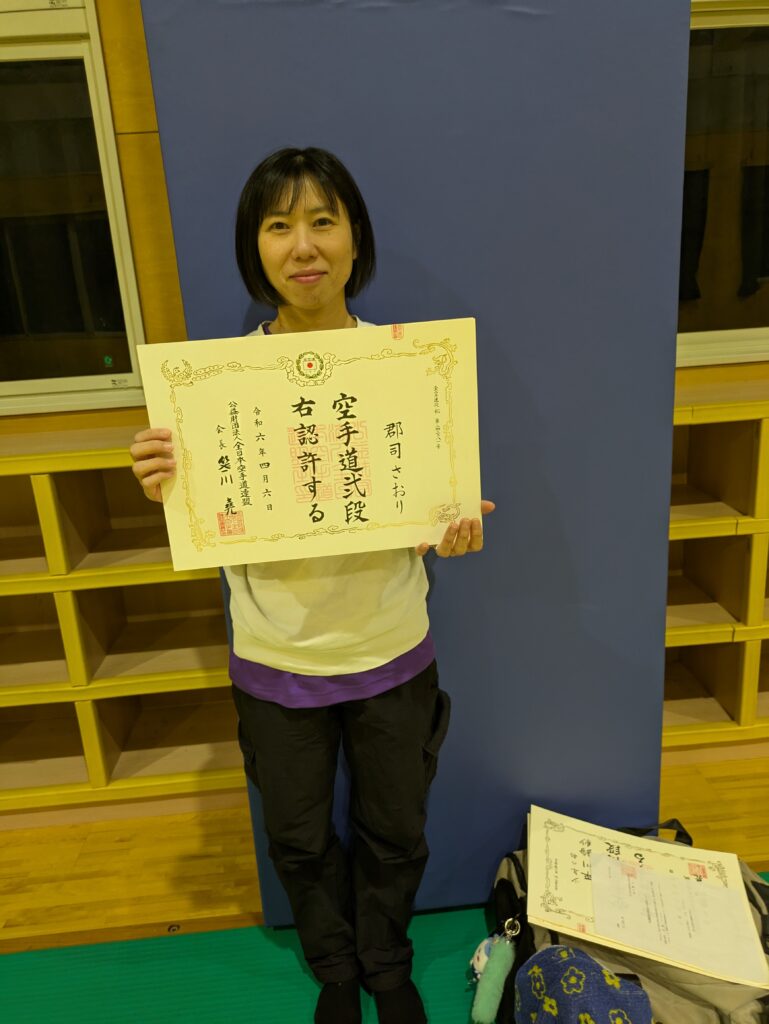 郡司さおり
空手道弐段
右認許する
令和六年四月六日
公益財団法人全日本空手道連盟
会長 笹川 堯